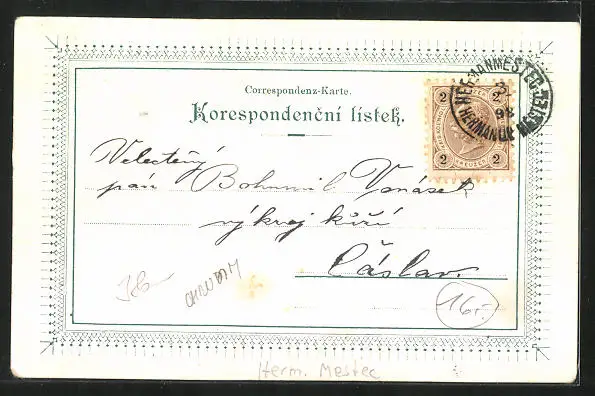 Correspondenz-Karte.
Korespondenční lístek.
2 2
KREUZER
2 2
HEŘMANMĚSTEC
3
98
HERMANN MĚSTEC
Velectěný
pán Bohumil Vanásek
výkroj kůží
Čáslav.
CHRUDIM
16.-
Herm. Mestec